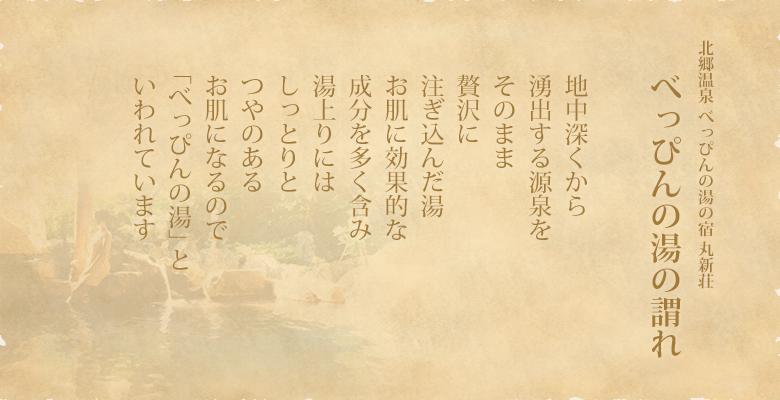 北郷温泉 べっぴんの湯の宿 丸新荘
べっぴんの湯の謂れ
地中深くから
湧出する源泉を
そのまま
贅沢に
注ぎ込んだ湯
お肌に効果的な
成分を多く含み
湯上りには
しっとりと
つやのある
お肌になるので
「べっぴんの湯」と
いわれています